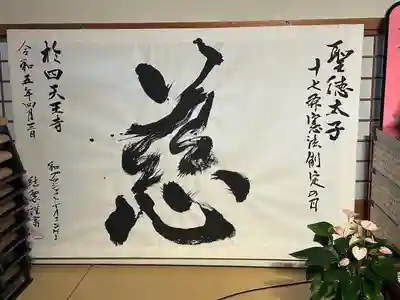 聖徳太子
十七条憲法創定の日
慈
於四天王寺
令和五年四月三日